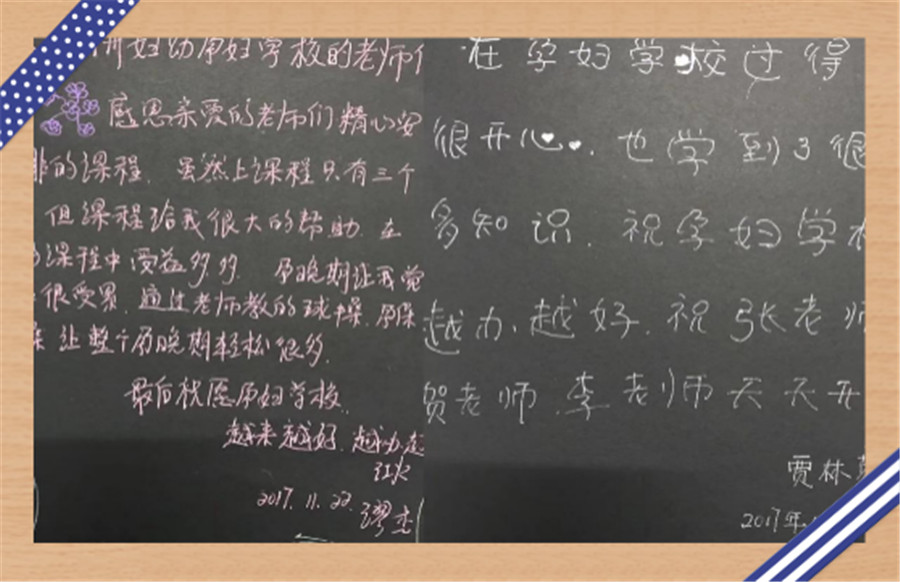 妇幼孕妇学校的老师
感恩亲爱的老师们精心安
排的课程。虽然上课程只有三个
但课程给我很大的帮助.在
课程中受益多多. 孕晚期让我觉
很受累.通过老师教的球操.孕操
让整个孕晚期轻松很多.
最后祝愿孕妇学校.
越来越好.越办越
红火
2017.11.22. 缪杰
在孕妇学校过得
很开心.也学到了很
多知识.祝孕妇学校
越办越好.祝张老师
贺老师.李老师天天开
贾林
2017年